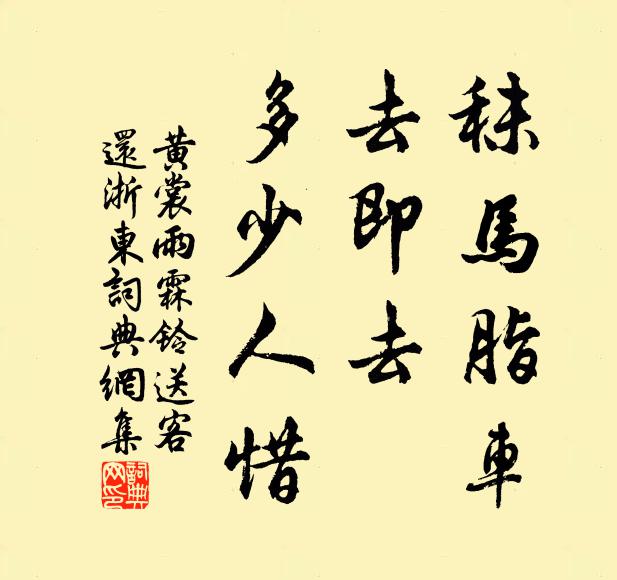 秣馬脂車
去即去
多少人惜
黃裳雨霖鈴送客
還浙東詞典網集
詞典网印